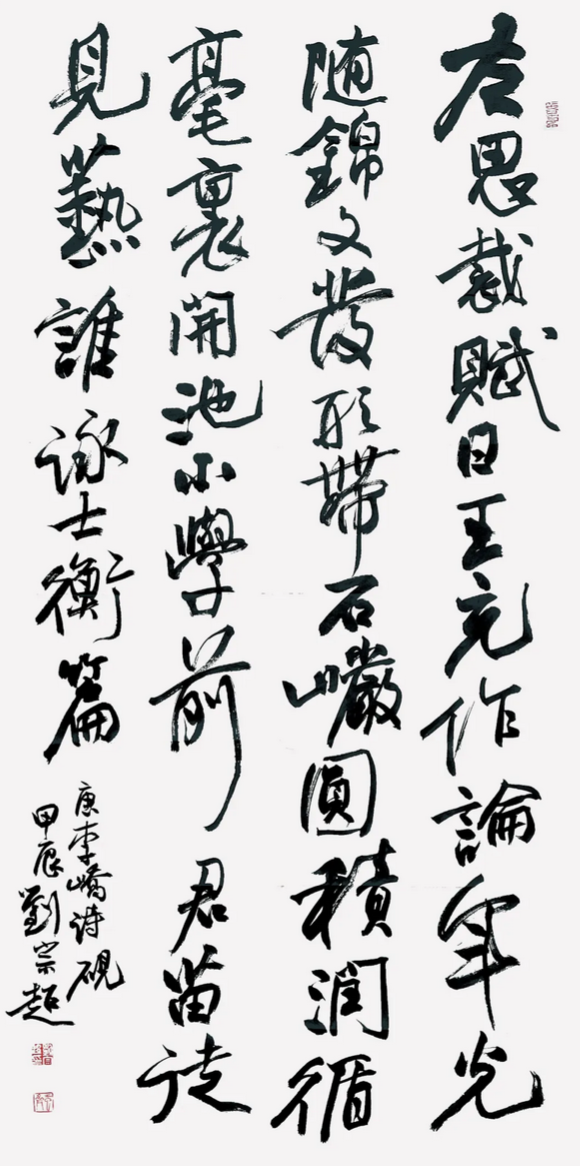 左思裁賦日王充作論年光
随錦文發形帶石巖圓積潤循
毫裏開池小學前君苗徒
見藝誰詠士衡篇
唐李嶠诗硯
甲辰劉宗超